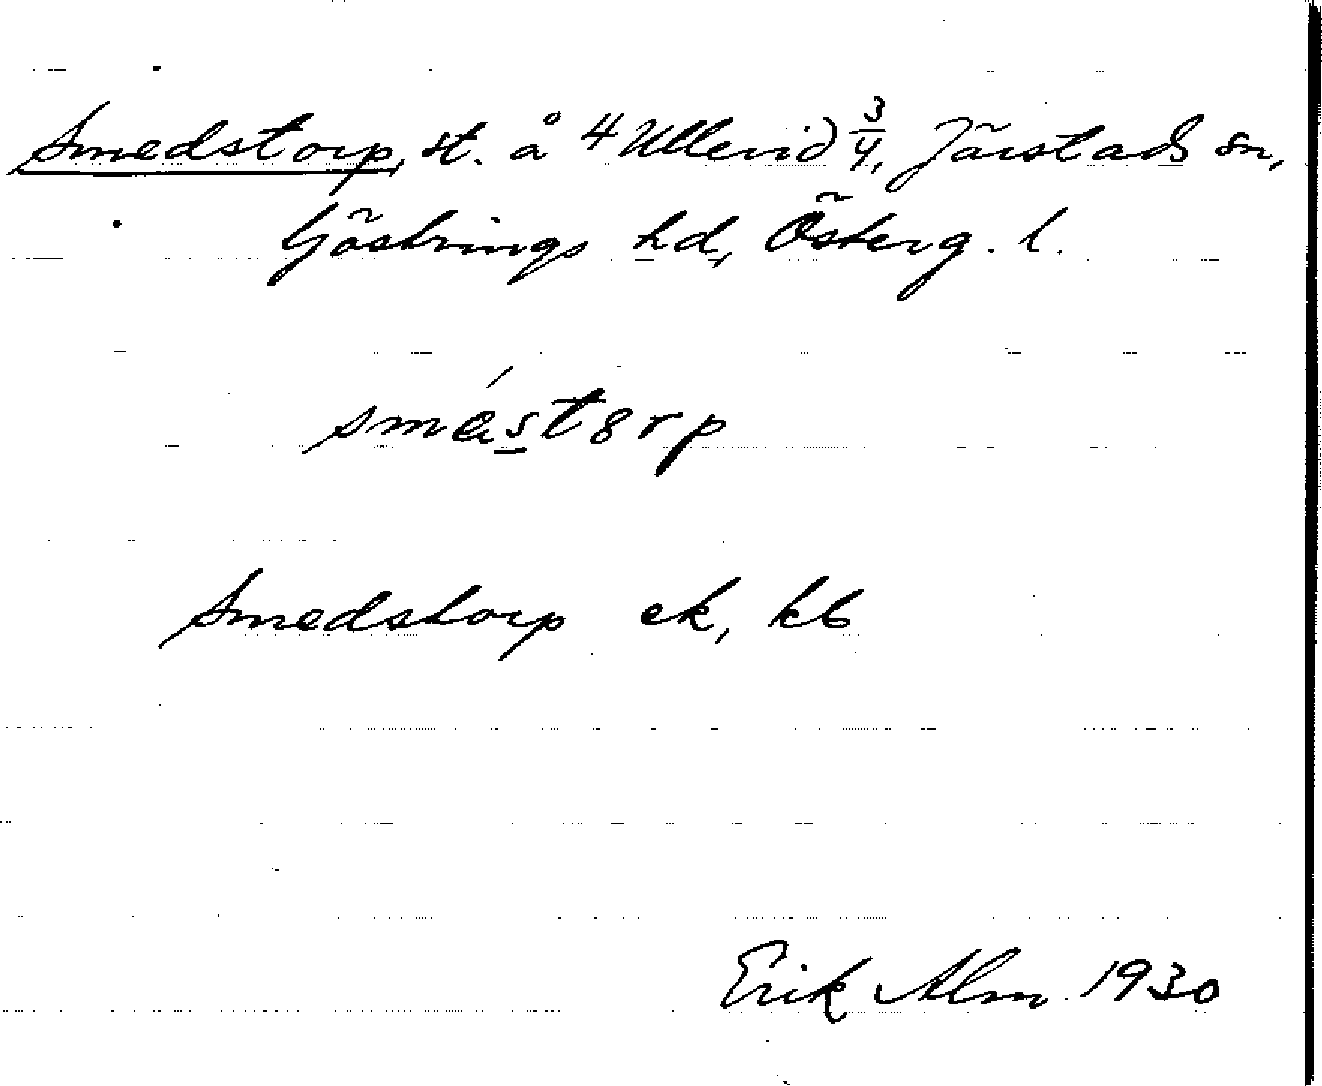 Smedstorp, st. å 4 Ullevid 3/4, Järstads sn,
Göstrings hd, Österg. l.
Smedstorp ek, kb
Erik Alm 1930